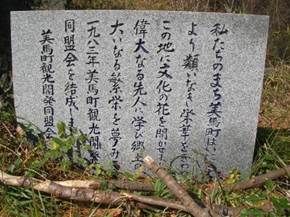 私たちのまち美馬町は
より類いなき栄華を
この地に文化の花を開かせ
偉大なる先人に学び郷土の
大いなる繁栄を夢みる
一九八二年美馬町観光開発
同盟会を結成し
美馬町観光開発同盟会